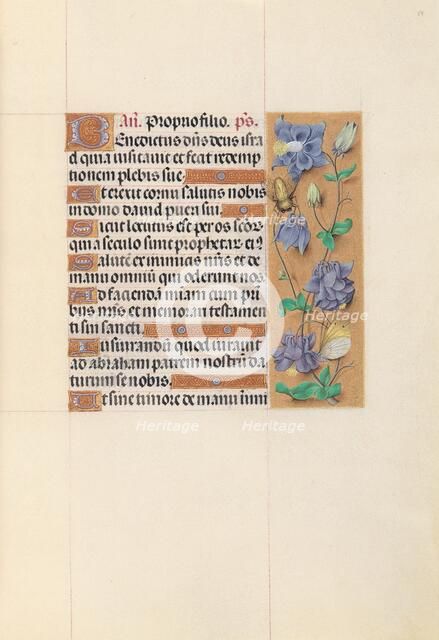 Añ. Proprio filio. ps.
Benedictus dñs deus isra
el quia visitauit et fecit redemp
tionem plebis sue.
Et erexit cornu salutis nobis
in domo dauid pueri sui.
Sicut locutus est per os scõr
qui a seculo sunt prophetar. ei9
Salutẽ ex inimicis nr̃is et de
manu omniũ qui oderunt nos
Ad faciendã miãm cum pri
bus nr̃is et memorari testamen
ti sui sancti.
Iusiurandũ quod iurauit
ad abraham patrem nostrũ da
turum se nobis.
Ut sine timore de manu inimi
Heritage Heritage
Heritage Heritage
Heritage Heritage